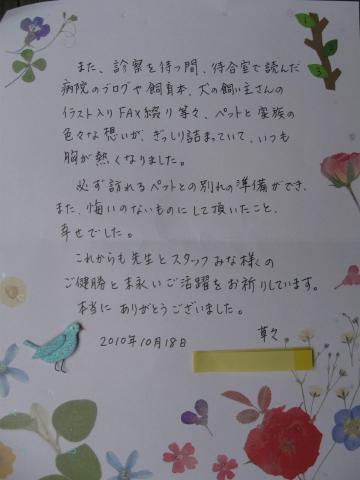 また、診察を待つ間、待合室で読んだ
病院のブログや飼育本、犬の飼い主さんの
イラスト入りFAX綴り等々、ペットと家族の
色々な想いが、ぎっしり詰まっていて、いつも
胸が熱くなりました。
必ず訪れるペットとの別れの準備ができ、
また、悔いのないものにして頂いたこと、
幸せでした。
これからも先生とスタッフみな様の
ご健勝と末永いご活躍をお祈りしています。
本当にありがとうございました。
草々
2010年10月18日